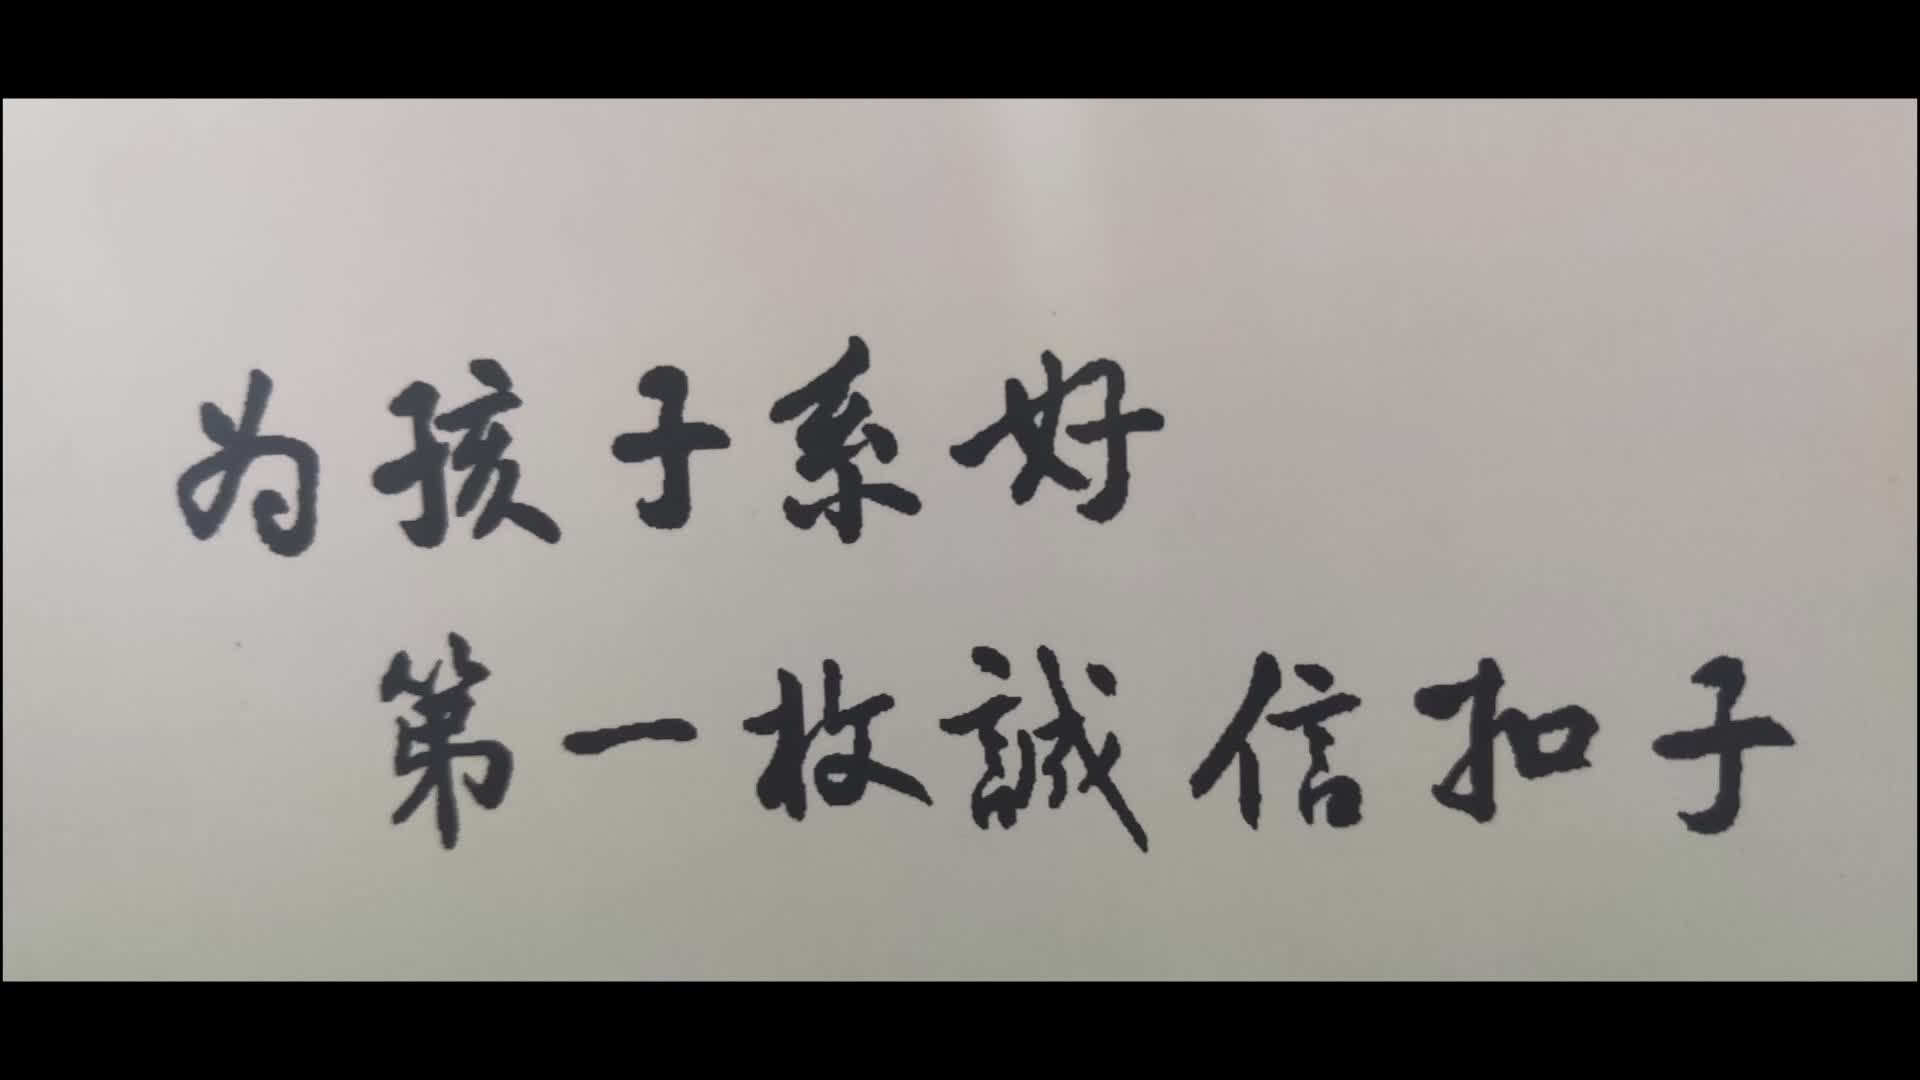 为孩子系好
第一枚誠信扣子